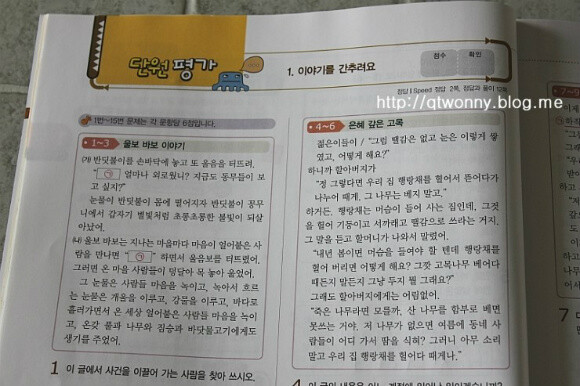 단원 평가
1. 이야기를 간추려요
점수 확인
정답 | Speed 정답 2쪽, 정답과 풀이 12쪽
http://qtwonny.blog.me
1번~15번 문제는 각 문항당 6점입니다.
1~3 울보 바보 이야기
(가) 반딧불이를 손바닥에 놓고 또 울음을 터뜨려.
"㉠ 얼마나 외로웠니? 지금도 동무들이 보
고 싶지?"
눈물이 반딧불이 몸에 떨어지자 반딧불이 꽁무
니에서 갑자기 별빛처럼 초롱초롱한 불빛이 되살
아났어.
(나) 울보 바보는 지나는 마을마다 마음이 얼어붙은 사
람을 만나면 "㉠" 하면서 울음보를 터뜨렸어.
그러면 온 마을 사람들이 덩달아 목 놓아 울었어.
그 눈물은 사람들 마음을 녹이고, 녹아서 흐르
는 눈물은 개울을 이루고, 강물을 이루고, 바다로
흘러가면서 온 세상 얼어붙은 사람들 마음을 녹이
고, 온갖 풀과 나무와 짐승과 바닷물고기에게도
생기를 주었어.
1 이 글에서 사건을 이끌어 가는 사람을 찾아 쓰시오.
4~6 은혜 갚은 고목
젊은이들이 / "그럼 땔감은 없고 눈은 이렇게 쌓
였고, 어떻게 해요?"
하니까 할아버지가
"정 그렇다면 우리 집 행랑채를 헐어서 뜯어다가
나누어 때게. 그 나무는 베지 말고."
하거든. 행랑채는 머슴이 들어 사는 집인데, 그것
을 헐어 기둥이고 서까래고 땔감으로 쓰라는 거지.
그 말을 듣고 할머니가 나와서 말렸어.
"내년 봄이면 머슴을 들여야 할 텐데 행랑채를
헐어 버리면 어떻게 해요? 그깟 고목나무 베어다
때든지 말든지 그냥 두지 뭘 그래요?"
그래도 할아버지에게는 어림없어.
"죽은 나무라면 모를까, 산 나무를 함부로 베면
못쓰는 거야. 저 나무가 없으면 여름에 동네 사
람들이 어디 가서 땀을 식혀? 그러니 아무 소리
말고 우리 집 행랑채를 헐어다 때게나."
7